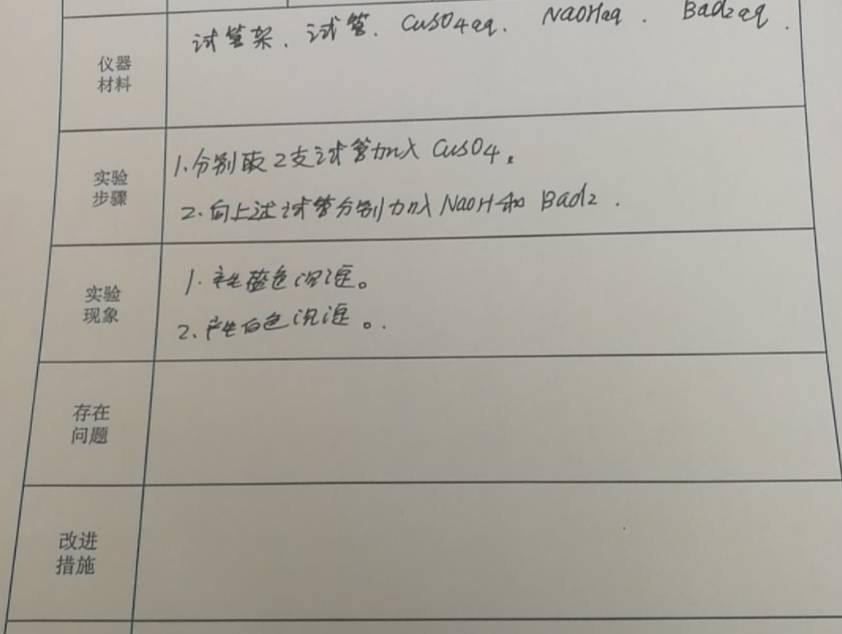 仪器
材料
试管架、试管、CuSO4aq、NaOHaq、BaCl2aq.
实验
步骤
1.分别取2支试管加入CuSO4。
2.向上述试管分别加入NaOH和BaCl2.
实验
现象
1.产生蓝色沉淀。
2.产生白色沉淀。.
存在
问题
改进
措施